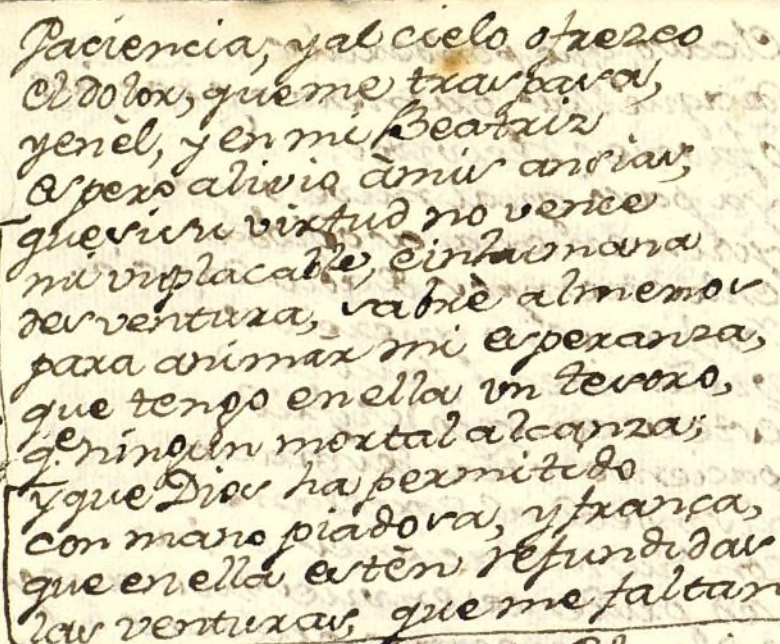 Paciencia, y al cielo ofrezco
el dolor, que me traspasa,
y en èl, y en mi Beatriz
espero alivio à mis ansias,
que si su virtud no vence
mi implacable, è inhumana
desventura, sabrè al menos
para animar mi esperanza,
que tengo en ella un tesoro,
q.e ningun mortal alcanza;
y que Dios ha permitido
con mano piadosa, y franca,
que en ella estèn refundidas
las venturas, que me faltan